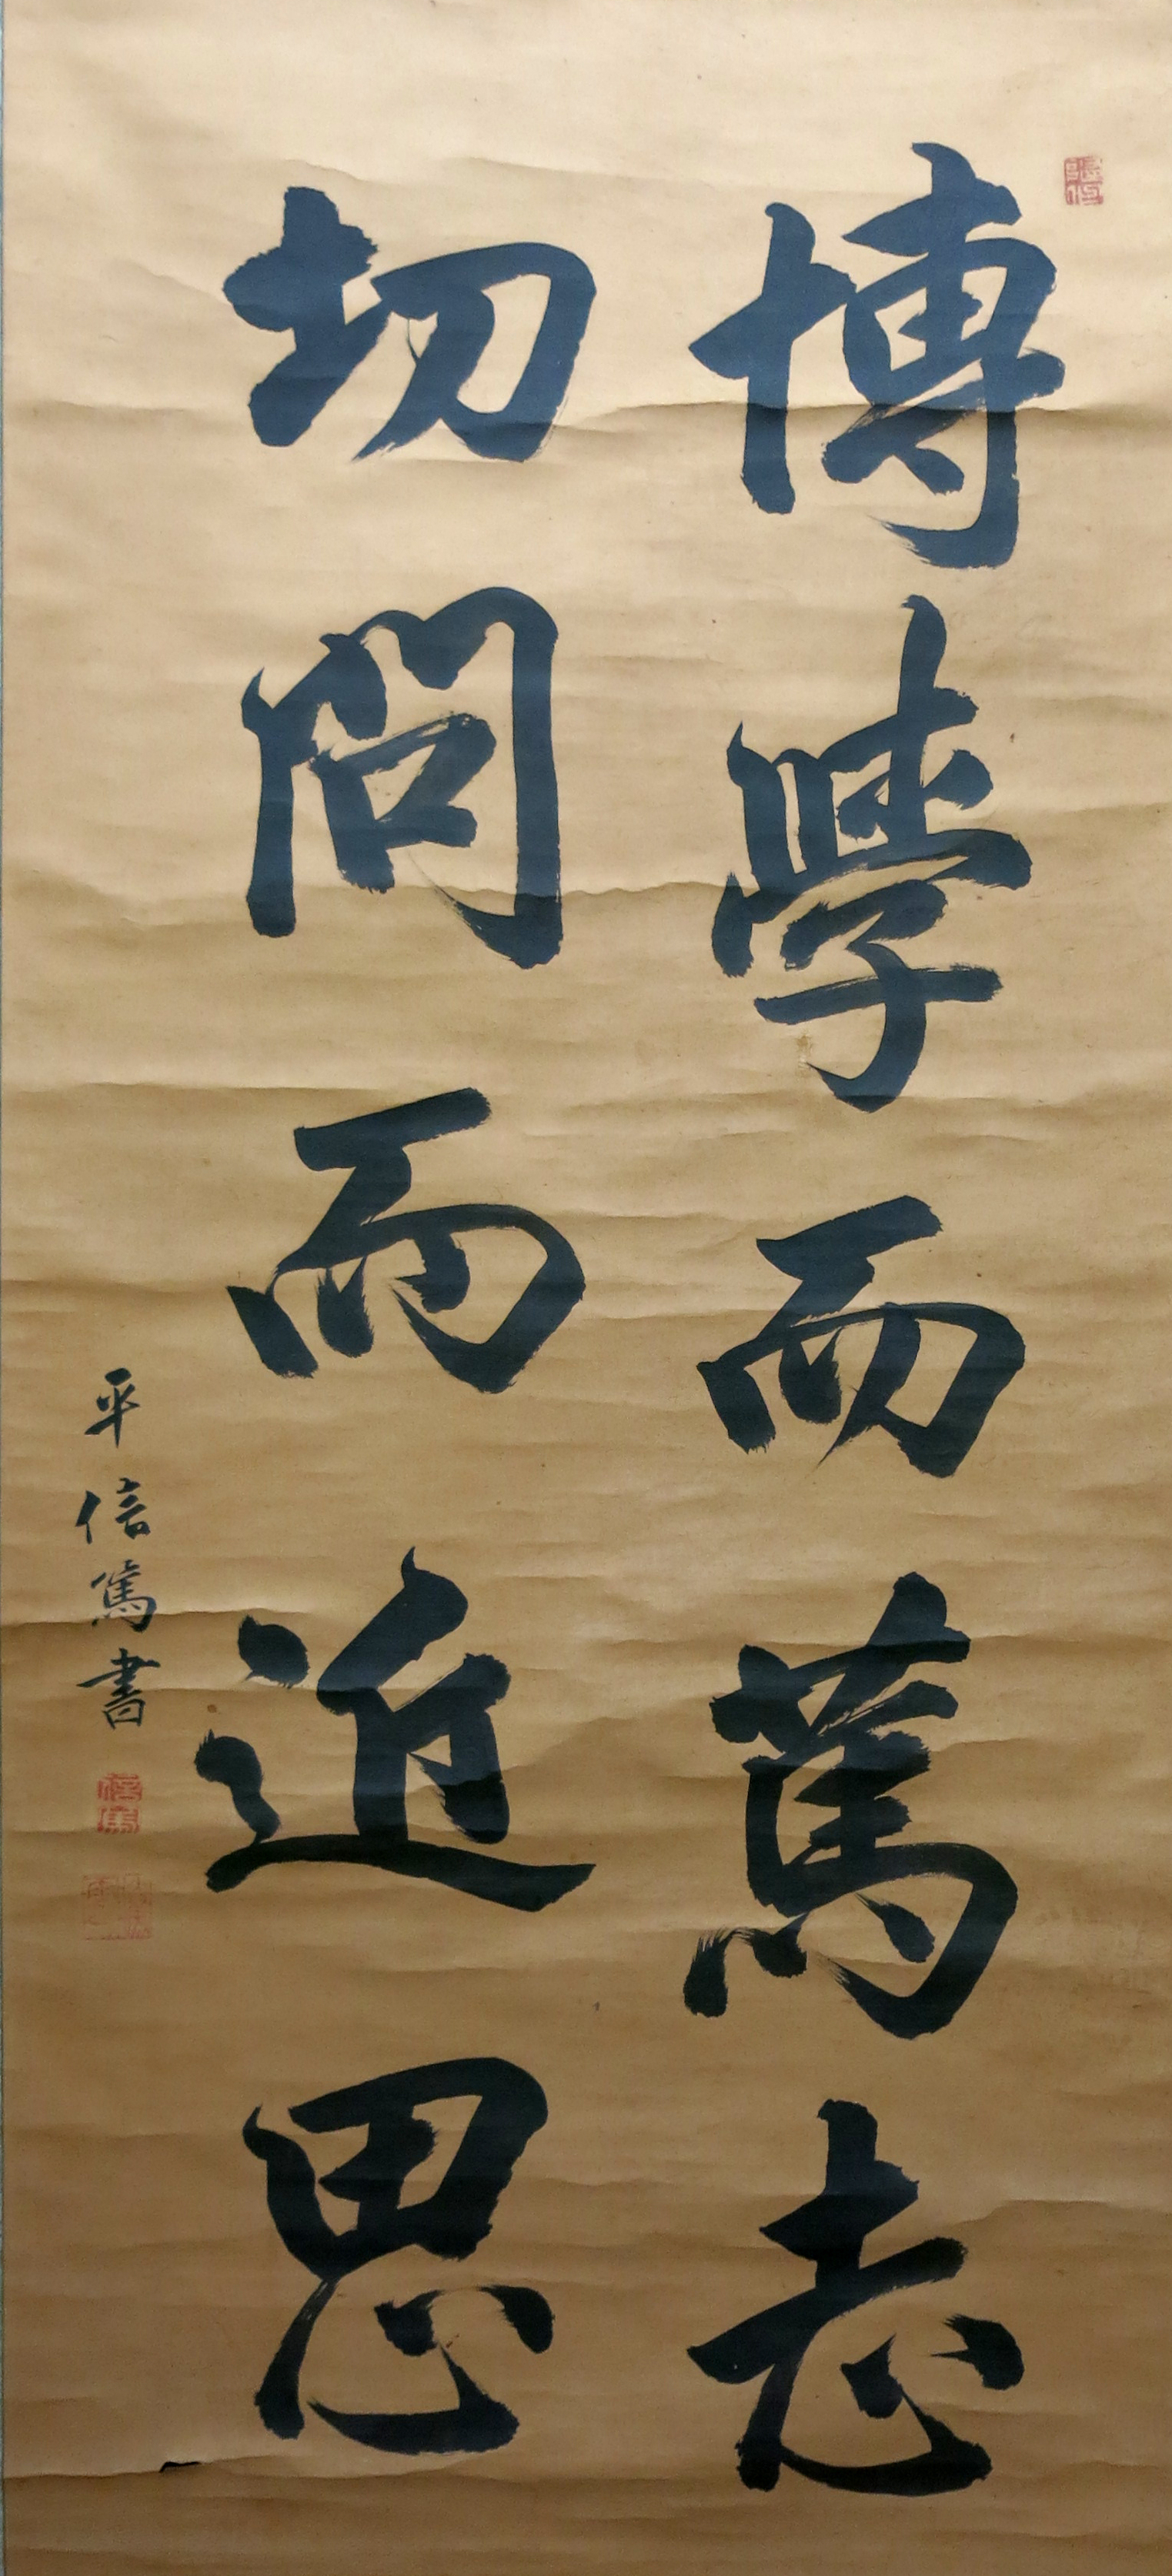 博學而篤志
切問而近思
平信篤書